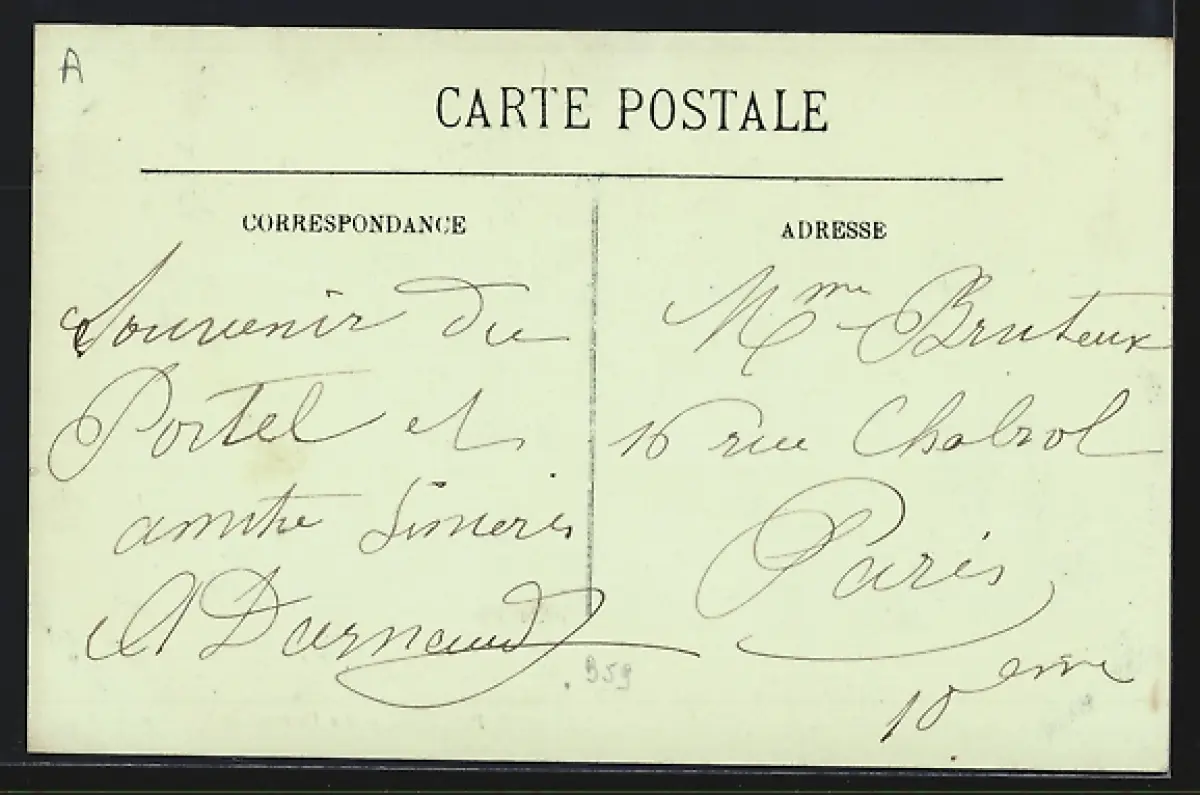 A
CARTE POSTALE
CORRESPONDANCE
Souvenir du
Portel et
amitié Sincères
A Darnaud
ADRESSE
Mme Bruteux
16 rue Chabrol
Paris
10eme
B59